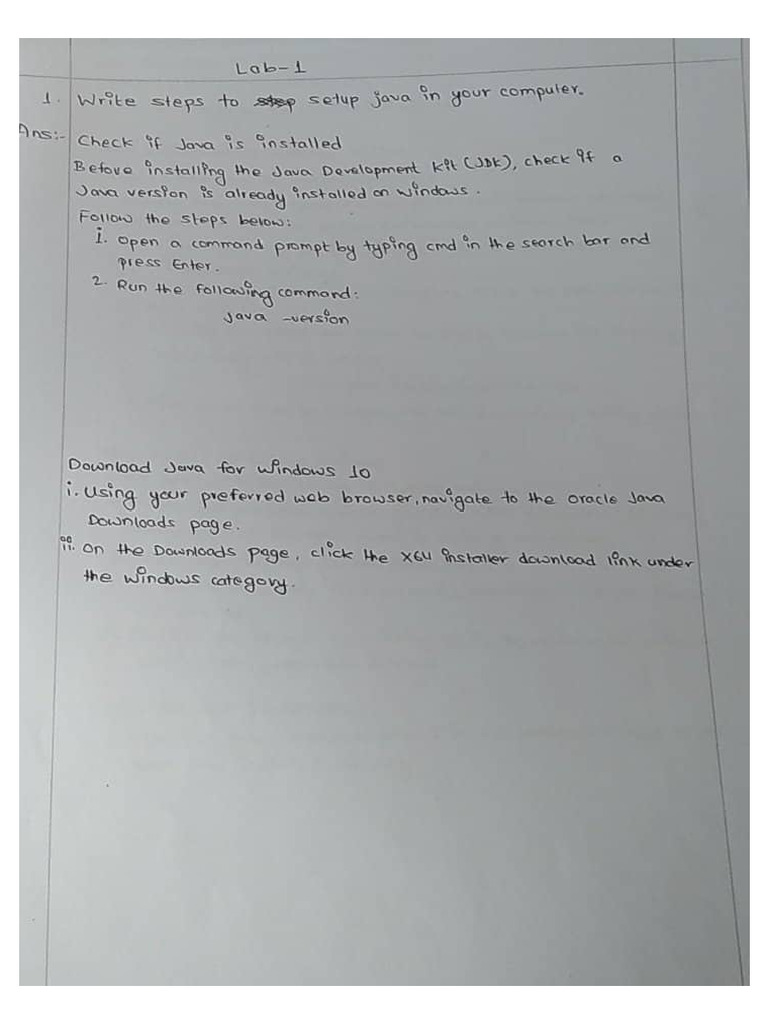 Lab-1
1. Write steps to step setup java in your computer.
Ans:- Check if Java is installed
Before installing the Java Development kit (JDK), check if a
Java version is already installed on windows.
Follow the steps below:
1. Open a command prompt by typing cmd in the search bar and
press Enter.
2. Run the following command:
Java -version
Download Java for windows 10
i. Using your preferred web browser, navigate to the oracle Java
Downloads page.
ii. On the Downloads page, click the x64 installer download link under
the windows category.